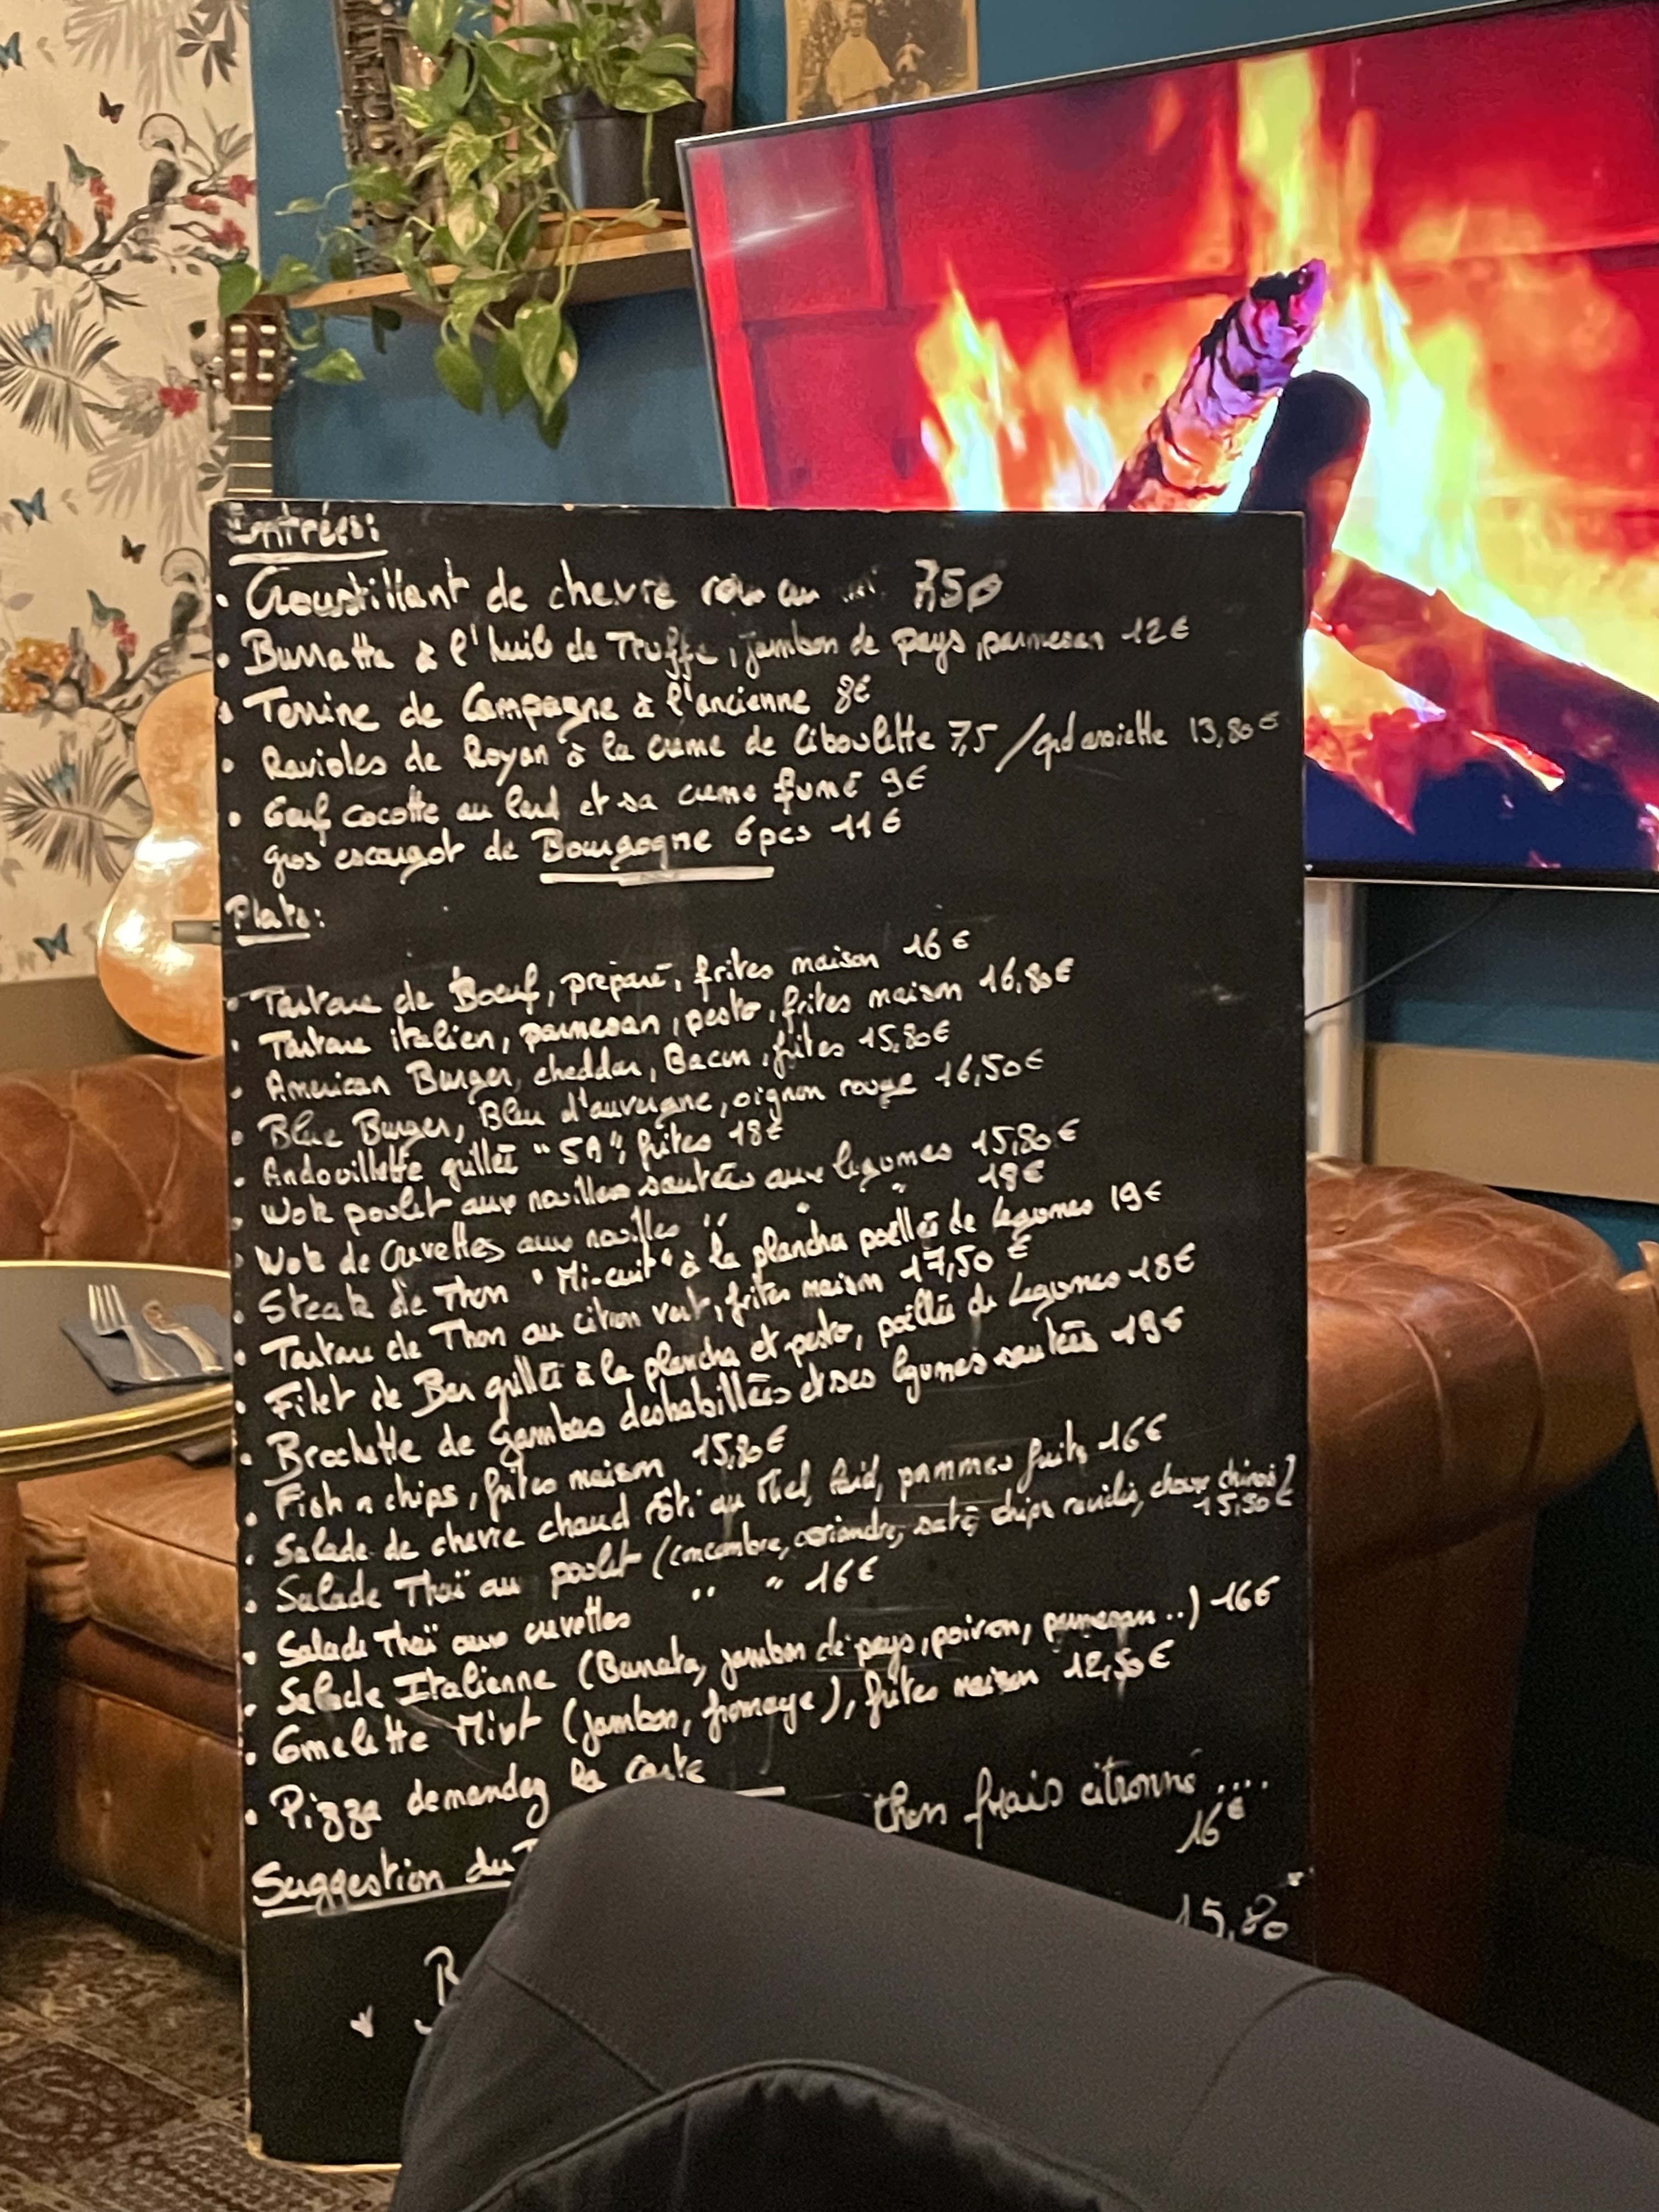 Entrées:
• Croustillant de chevre 7,50
• Burratta à l'huile de Truffe, jambon de pays, parmesan 12€
• Terrine de Campagne à l'ancienne 8€
• Ravioles de Royan à la creme de Ciboulette 7,5 / grd assiette 13,80€
• Oeuf cocotte au lard et sa creme fumé 9€
gros escargot de Bourgogne 6pcs 11€
Plats:
• Tartare de Boeuf, préparé, frites maison 16€
• Tartare italien, parmesan, pesto, frites maison 16,80€
• American Burger, cheddar, Bacon, frites 15,80€
• Blue Burger, Bleu d'auvergne, oignon rouge 16,50€
• Andouillette grillée "5A", frites 18€
• Wok poulet aux nouilles sautées aux legumes 15,80€
• Wok de Crevettes aux nouilles " " " 18€
• Steak de Thon "Mi-cuit" à la plancha poêllée de legumes 19€
• Tartare de Thon au citron vert, frites maison 17,50€
• Filet de Bar grillé à la plancha et pesto, poêllée de legumes 18€
• Brochette de Gambas deshabillées et ses legumes sautées 19€
• Fish n chips, frites maison 15,80€
• Salade de chevre chaud rôti au Miel, lard, pommes fruits 16€
• Salade Thaï au poulet (concombre, coriandre, saté, chips ravioli, choux chinois) 15,80€
• Salade Thaï aux crevettes " " 16€
• Salade Italienne (Burrata, jambon de pays, poivron, parmesan..) 16€
• Omelette Mixt (jambon, fromage), frites maison 12,50€
• Pizza demandez la Carte
Suggestion du
thon frais citronné ....
16€
15,80